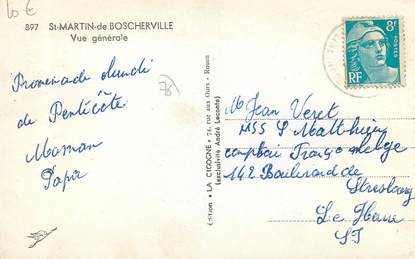 10 €
897 St-MARTIN-de BOSCHERVILLE
Vue générale
8F
POSTES
RF
Promenade lundi
de Pentecôte
Maman
Papa
EDITION • LA CIGOGNE • 74, rue aux Ours - Rouen
(exclusivité André Leconte)
Mr Jean Veret
MSS S Matthieu
142 Boulevard de
Strasbourg
Le Havre
SI